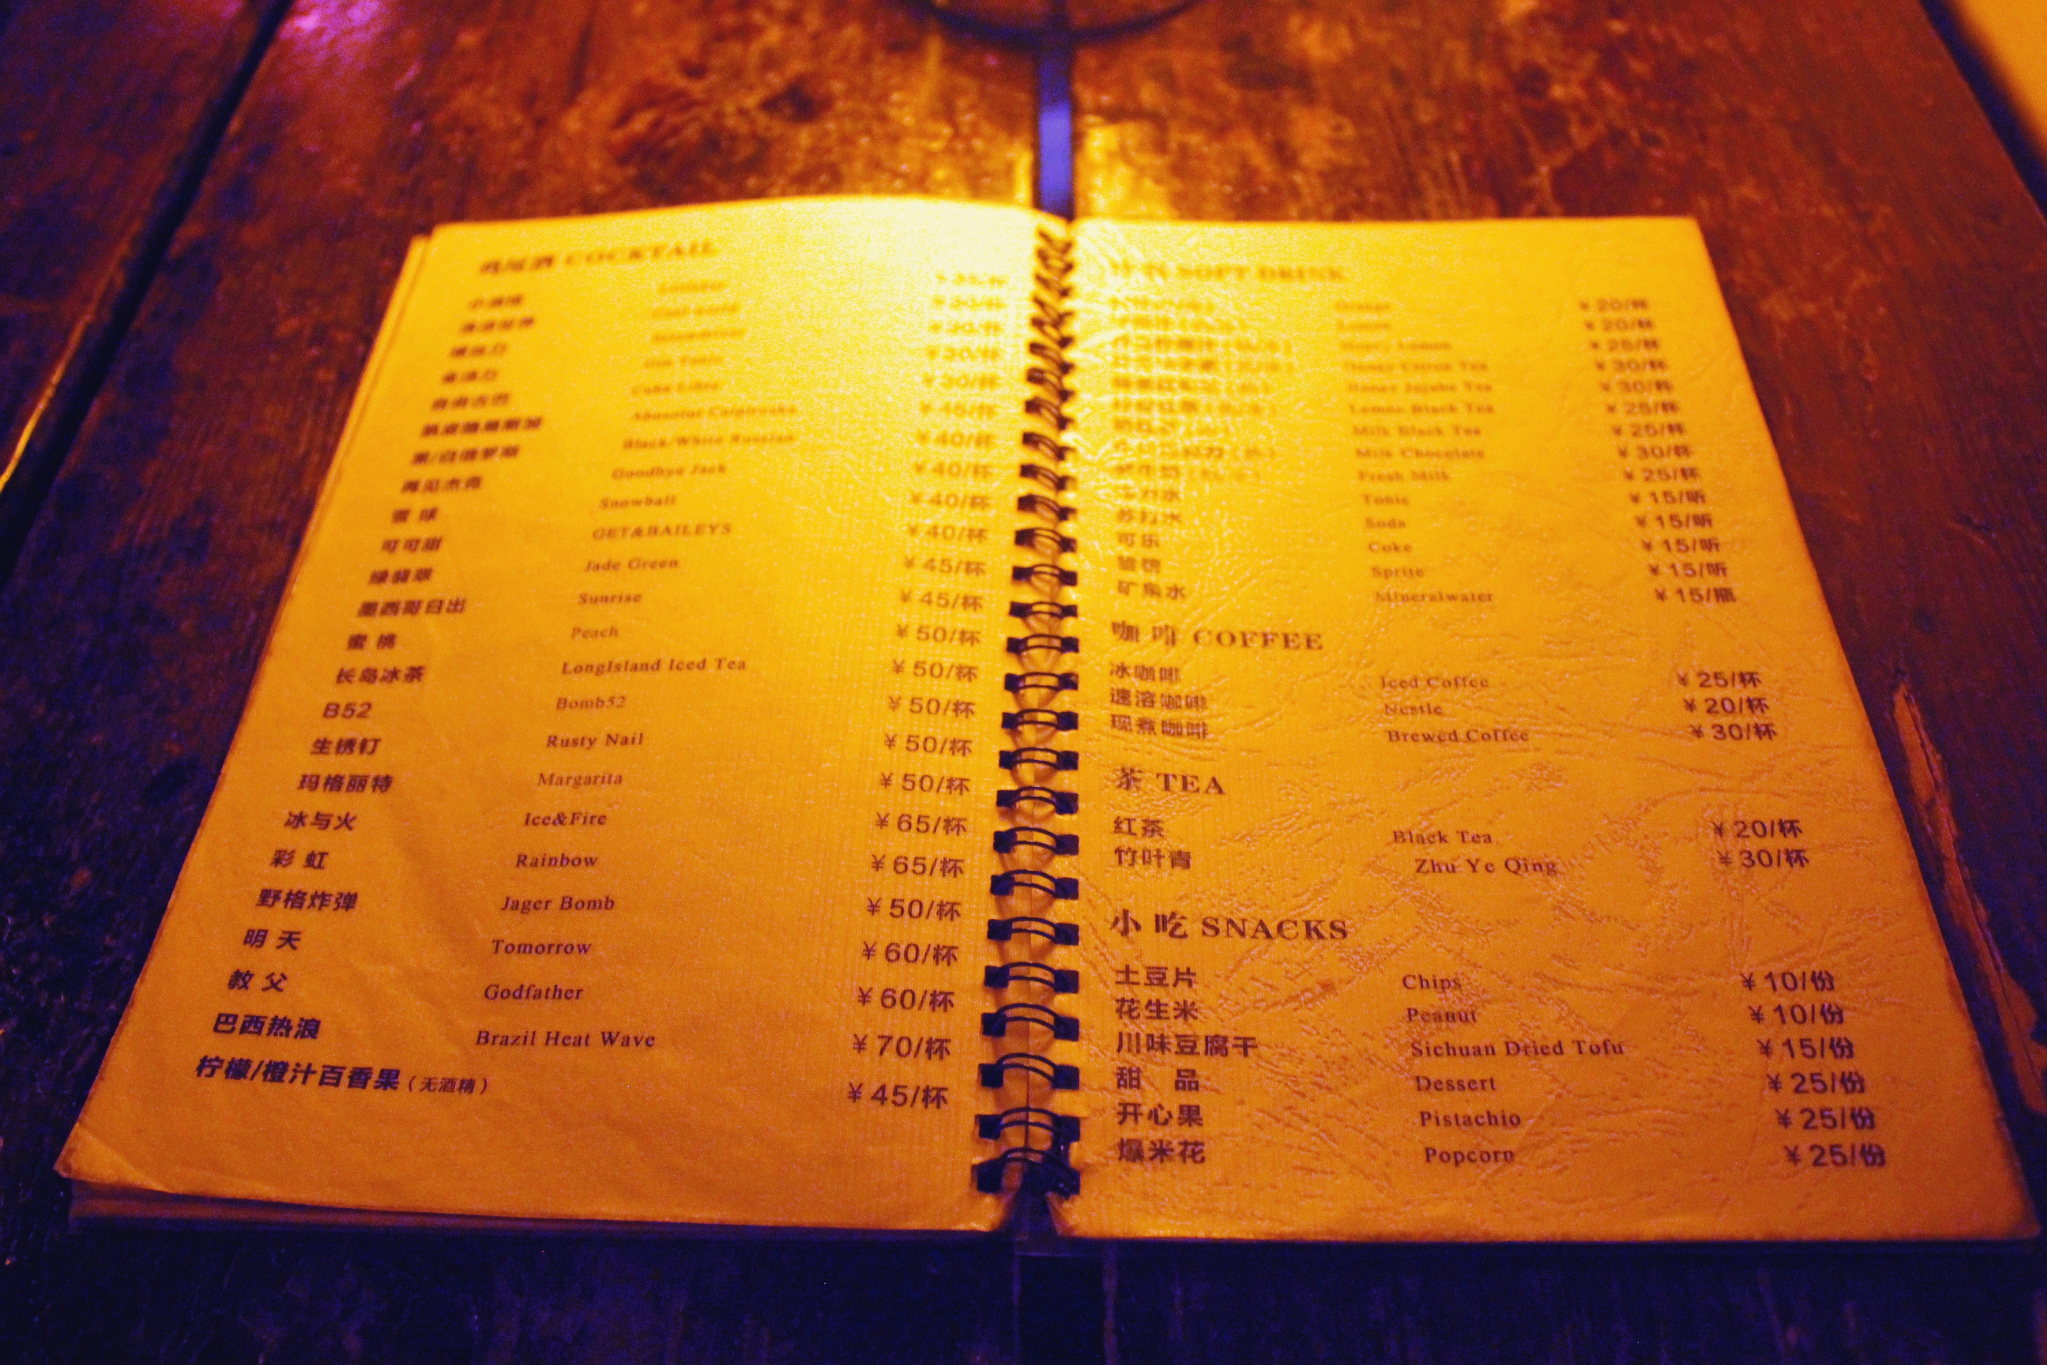 鸡尾酒 COCKTAIL
Cool world ¥30/杯
Screwdriver ¥30/杯
金汤力 Gin Tonic ¥30/杯
自由古巴 Cuba Libre ¥30/杯
Absolut Caipiroska ¥45/杯
黑/白俄罗斯 Black/White Russian ¥40/杯
再见杰克 Goodbye Jack ¥40/杯
雪球 Snowball ¥40/杯
可可甜 GET&BAILEYS ¥40/杯
绿翡翠 Jade Green ¥45/杯
墨西哥日出 Sunrise ¥45/杯
蜜桃 Peach ¥50/杯
长岛冰茶 LongIsland Iced Tea ¥50/杯
B52 Bomb52 ¥50/杯
生锈钉 Rusty Nail ¥50/杯
玛格丽特 Margarita ¥50/杯
冰与火 Ice&Fire ¥65/杯
彩虹 Rainbow ¥65/杯
野格炸弹 Jager Bomb ¥50/杯
明天 Tomorrow ¥60/杯
教父 Godfather ¥60/杯
巴西热浪 Brazil Heat Wave ¥70/杯
柠檬/橙汁百香果（无酒精） ¥45/杯
SOFT DRINK
Orange ¥20/杯
Lemon ¥20/杯
Honey Lemon ¥25/杯
Honey Citron Tea ¥30/杯
Honey Jujube Tea ¥30/杯
Lemon Black Tea ¥25/杯
Milk Black Tea ¥25/杯
Milk Chocolate ¥30/杯
Fresh Milk ¥25/杯
Tonic ¥15/听
苏打水 Soda ¥15/听
可乐 Coke ¥15/听
雪碧 Sprite ¥15/听
矿泉水 Mineralwater ¥15/瓶
咖啡 COFFEE
冰咖啡 Iced Coffee ¥25/杯
速溶咖啡 Nestle ¥20/杯
现煮咖啡 Brewed Coffee ¥30/杯
茶 TEA
红茶 Black Tea ¥20/杯
竹叶青 Zhu Ye Qing ¥30/杯
小吃 SNACKS
土豆片 Chips ¥10/份
花生米 Peanut ¥10/份
川味豆腐干 Sichuan Dried Tofu ¥15/份
甜 品 Dessert ¥25/份
开心果 Pistachio ¥25/份
爆米花 Popcorn ¥25/份